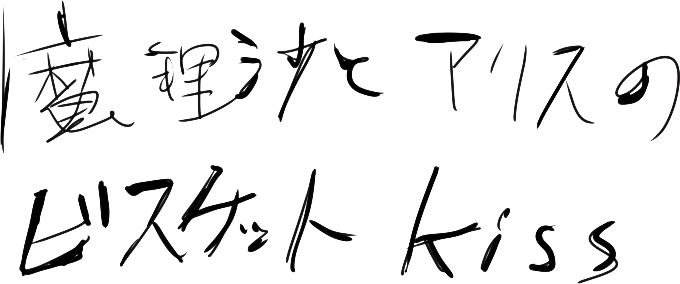 魔理沙とアリスの
ビスケットkiss